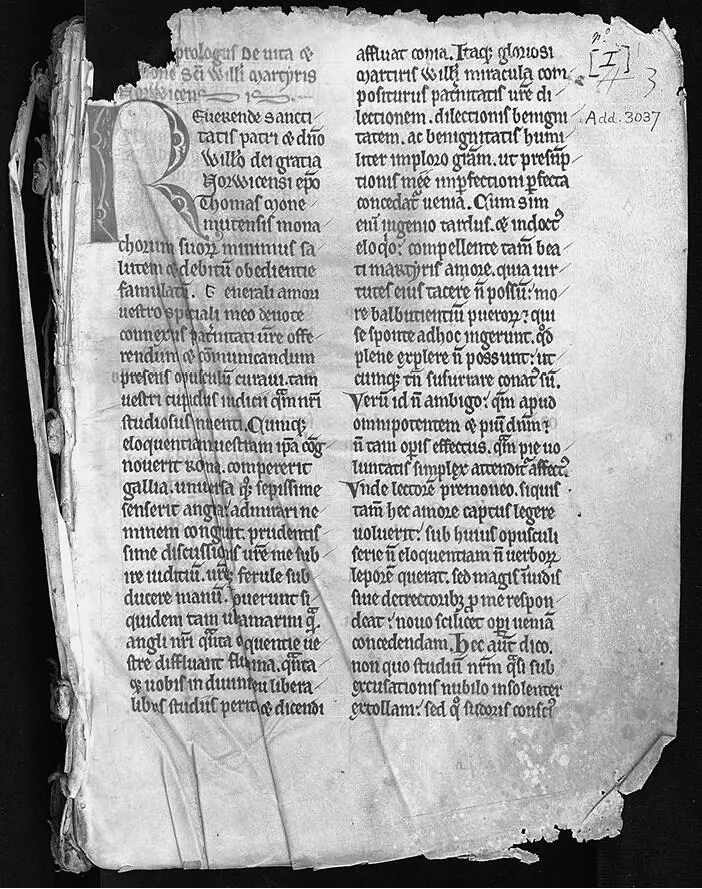 prologus de uita ⁊
one sc̄i Willi martyris
Norwicens
REuerende sancti
tatis patri ⁊ dn̄o
Willo dei gratia
Norwicensi ep̄o
Thomas mone
mutensis mona
chorum suoꝝ minimus sa
lutem ⁊ debitū obedientie
famulatū. Generali amori
uestro speciali meo deuote
connexus pat̄nitati ur̄e offe
rendum ⁊ cōmunicandum
presens opusculū curaui. tam
uestri cupidus iudicii qm̄ nr̄i
studiosus inuenti. Cumq;
eloquentiam uestram ip̄a cog
nouerit roma. compererit
gallia. uniuersa q; sepissime
senserit anglia. admirari ne
minem congruit. prudentis
sime discussionis ur̄e me sub
re iuditiū. ur̄e ferule sub
ducere manū. Nouerunt si
quidem tam
angli nr̄i qn̄ta eloquentie ue
stre diffluant flumina. qn̄ta
q; uobis in diuini seu libera
libus studiis peritia ⁊ dicendi
affluat copia. Itaq; gloriosi
martiris Willi miracula com
positurus pat̄nitatis ur̄e di
lectionem. dilectionis benigni
tatem. ac benignitatis humi
liter imploro gr̄am. ut presūp
tionis mee imp̄fectioni p̄fecta
concedat̄ uenia. Cum sim
eni ingenio tardus. ⁊ indoct9
eloq̄o: compellente tam̄ bea
ti martyris amore. quia uir
tutes eius tacere n̄ possū: mo
re balbutientiū pueroꝝ: qui
se sponte ad hoc ingerunt. qd̄
plene explere n̄ possunt: ut
cumq; tn̄ susurrare conat9 sū.
Verū id n̄ ambigo: qm̄ apud
omnipotentem ⁊ piū dn̄m:
n̄ tam op̄is effectus. qm̄ pie uo
luntatis simplex attendit̄ affect9.
Vnde lectorē premoneo. siquis
tam̄ hec amore captus legere
uoluerit: sub huius opusculi
serie n̄ eloquentiam n̄ uerboꝝ
leporē querat. sed magis īuidis
siue detrectorib; p me respon
deat: nouo scilicet op̄i ueniā
concedendam. Hec aut̄ dico.
non quo studiū nr̄m q̄si sub
excusationis nubilo insolenter
extollam: sed q̄ sudoris consci9
nº
[I]
3
Add. 3037